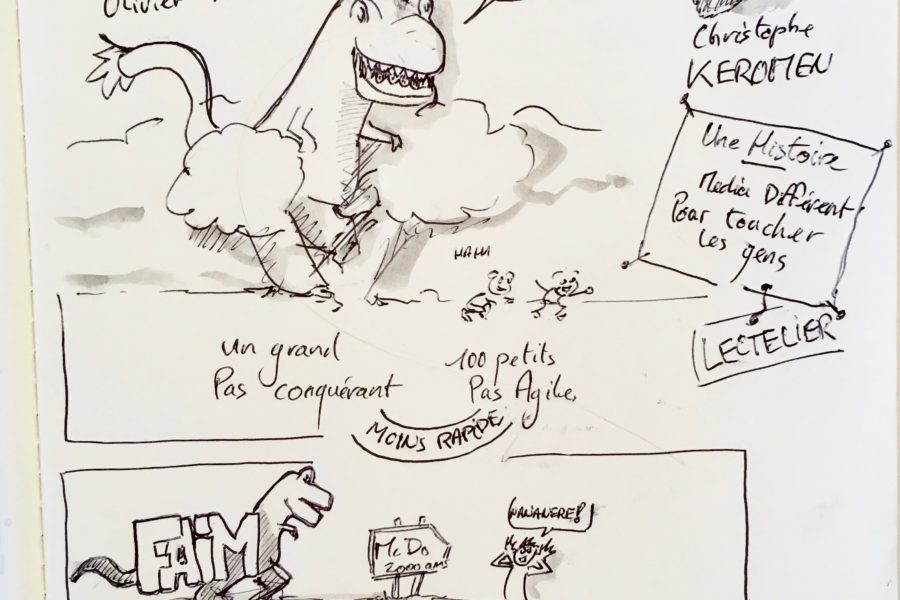 Olivier
Christophe
KEROMEN
Une Histoire
Media Différent
Pour toucher
les gens
LECTELIER
HAHA
un grand
Pas conquérant
100 petits
Pas Agile,
MOINS RAPIDE
FAIM
Mc Do
2000 ans
NANANERE!